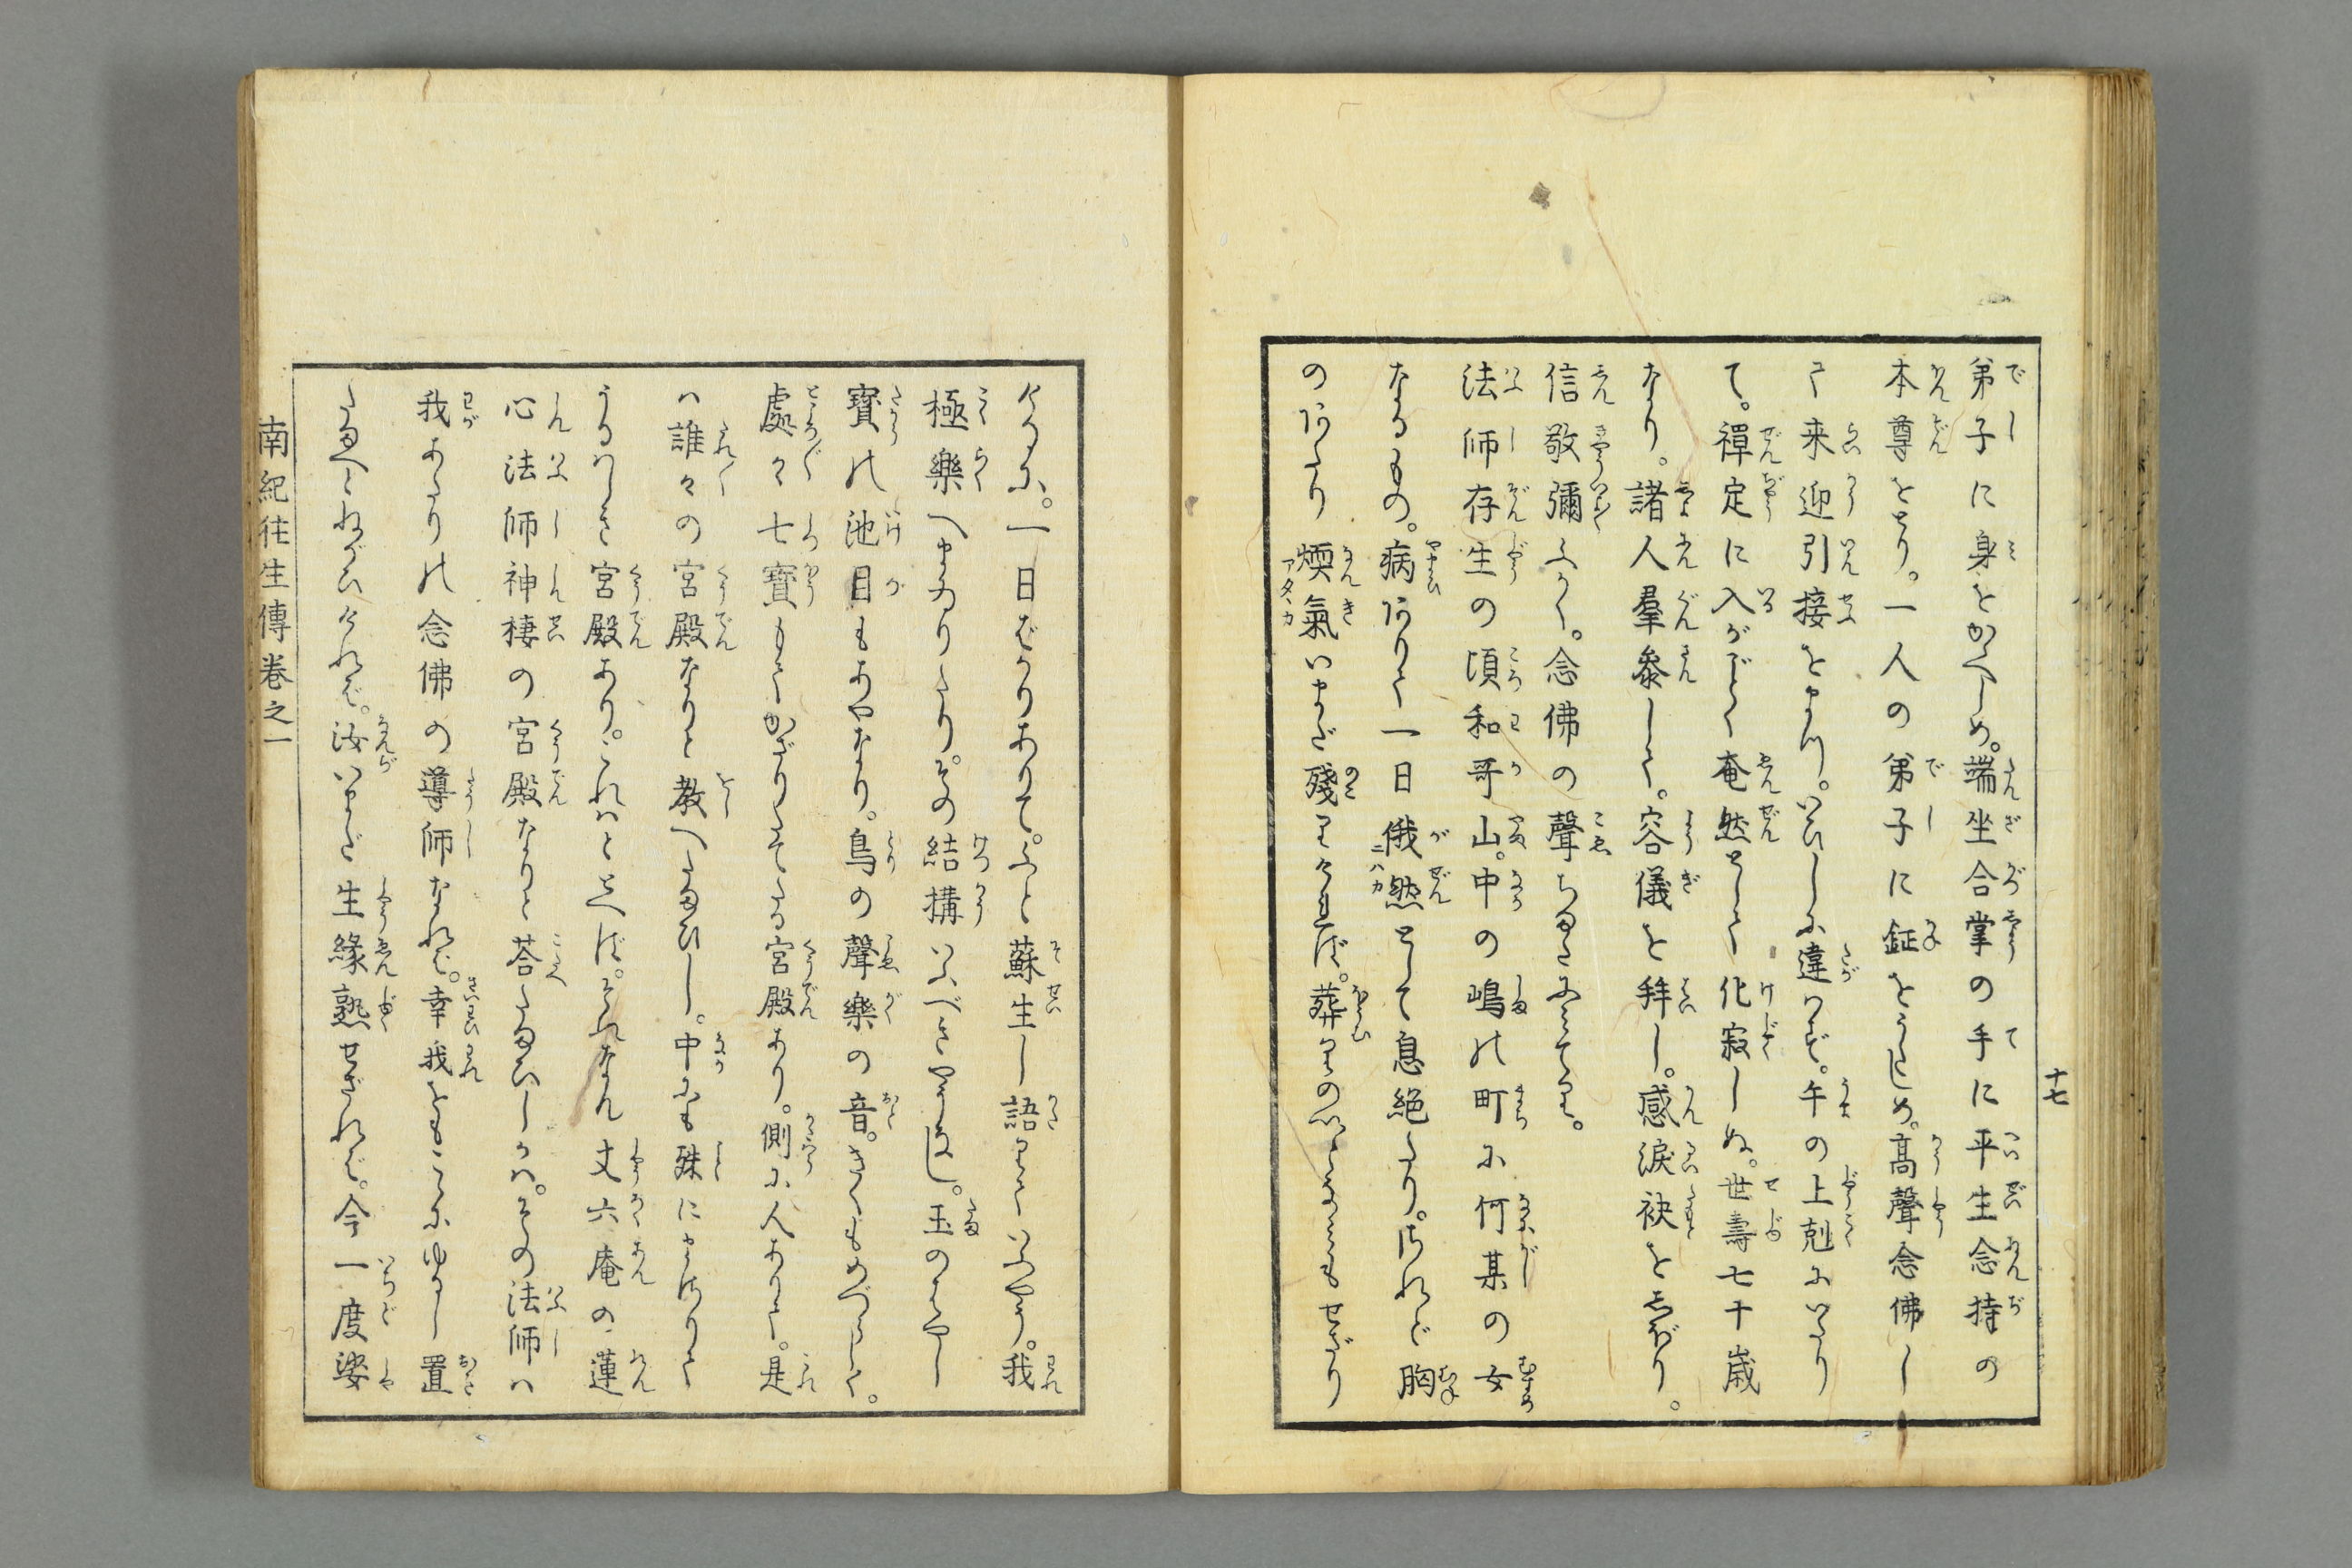 十七
弟子に身をかゝへしめ。端坐合掌の手に平生念持の
本尊をとり。一人の弟子に鉦をうたしめ。高聲念佛し
て来迎引接をまつ。いひしに違ハず。午の上剋にいたり
て。禪定に入がごとく奄然として化寂しぬ。世壽七十歳
なり。諸人羣叅して。容儀を拜し。感涙袂をしぼり。
信敬彌ふかく。念佛の聲ちまたにみてり。
法師存生の頃和哥山。中の嶋の町に何某の女
なるもの。病ありて一日俄然として息絶たり。されど胸
のあたり煗氣いまだ殘りければ。葬りのいとなみもせざり
けるに。一日ばかりありて。ふと蘇生し語りていふやう。我
極樂へまゐりたり。その結構いふべきやうなし。玉のはやし
寳の池目もあやなり。鳥の聲樂の音。きくもめづらしく。
處々七寳もてかざりたてたる宮殿あり。側に人ありて。是
ハ誰々の宮殿なりと教へたまひし。中にも殊にまさりて
うるはしき宮殿あり。これハととへば。それなん丈六庵の蓮
心法師神棲の宮殿なりと荅たまひしかハ。その法師ハ
我あたりの念佛の導師なれば。幸我をもこゝにゆるし置
たまへとねがひけれど。汝いまだ生緣熟せざれば。今一度娑
南紀往生傳卷之一